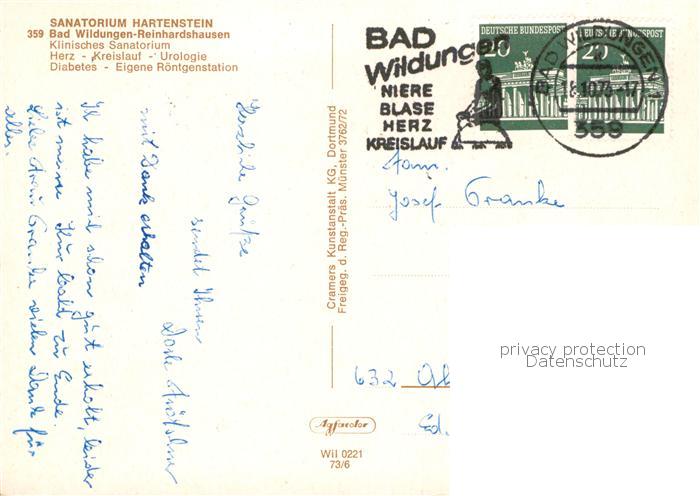 SANATORIUM HARTENSTEIN
359 Bad Wildungen-Reinhardshausen
Klinisches Sanatorium
Herz - Kreislauf - Urologie
Diabetes - Eigene Röntgenstation
Herzliche Grüße
sendet Ihnen
mit Dank erhalten
Dorle
Ich habe mich schon gut erholt, leider
ist meine Kur bald zu Ende.
Liebe Frau Franke vielen Dank für
alles.
Cramers Kunstanstalt KG, Dortmund
Freigeg. d. Reg.-Präs. Münster 3762/72
BAD
Wildungen
NIERE
BLASE
HERZ
KREISLAUF
DEUTSCHE BUNDESPOST
20
DEUTSCHE BUNDESPOST
20
BAD WILDUNGEN
18.10.74-17
359
Fam.
Josef Franke
privacy protection
Datenschutz
632
Ed.
Agfacolor
Wil 0221
73/6